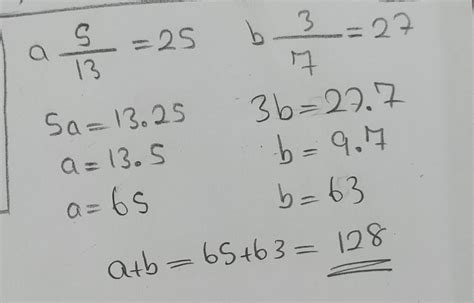 a 5/13 = 25
b 3/7 = 27
5a = 13.25
3b = 27.7
a = 13.5
b = 9.7
a = 65
b = 63
a+b = 65+63 = 128